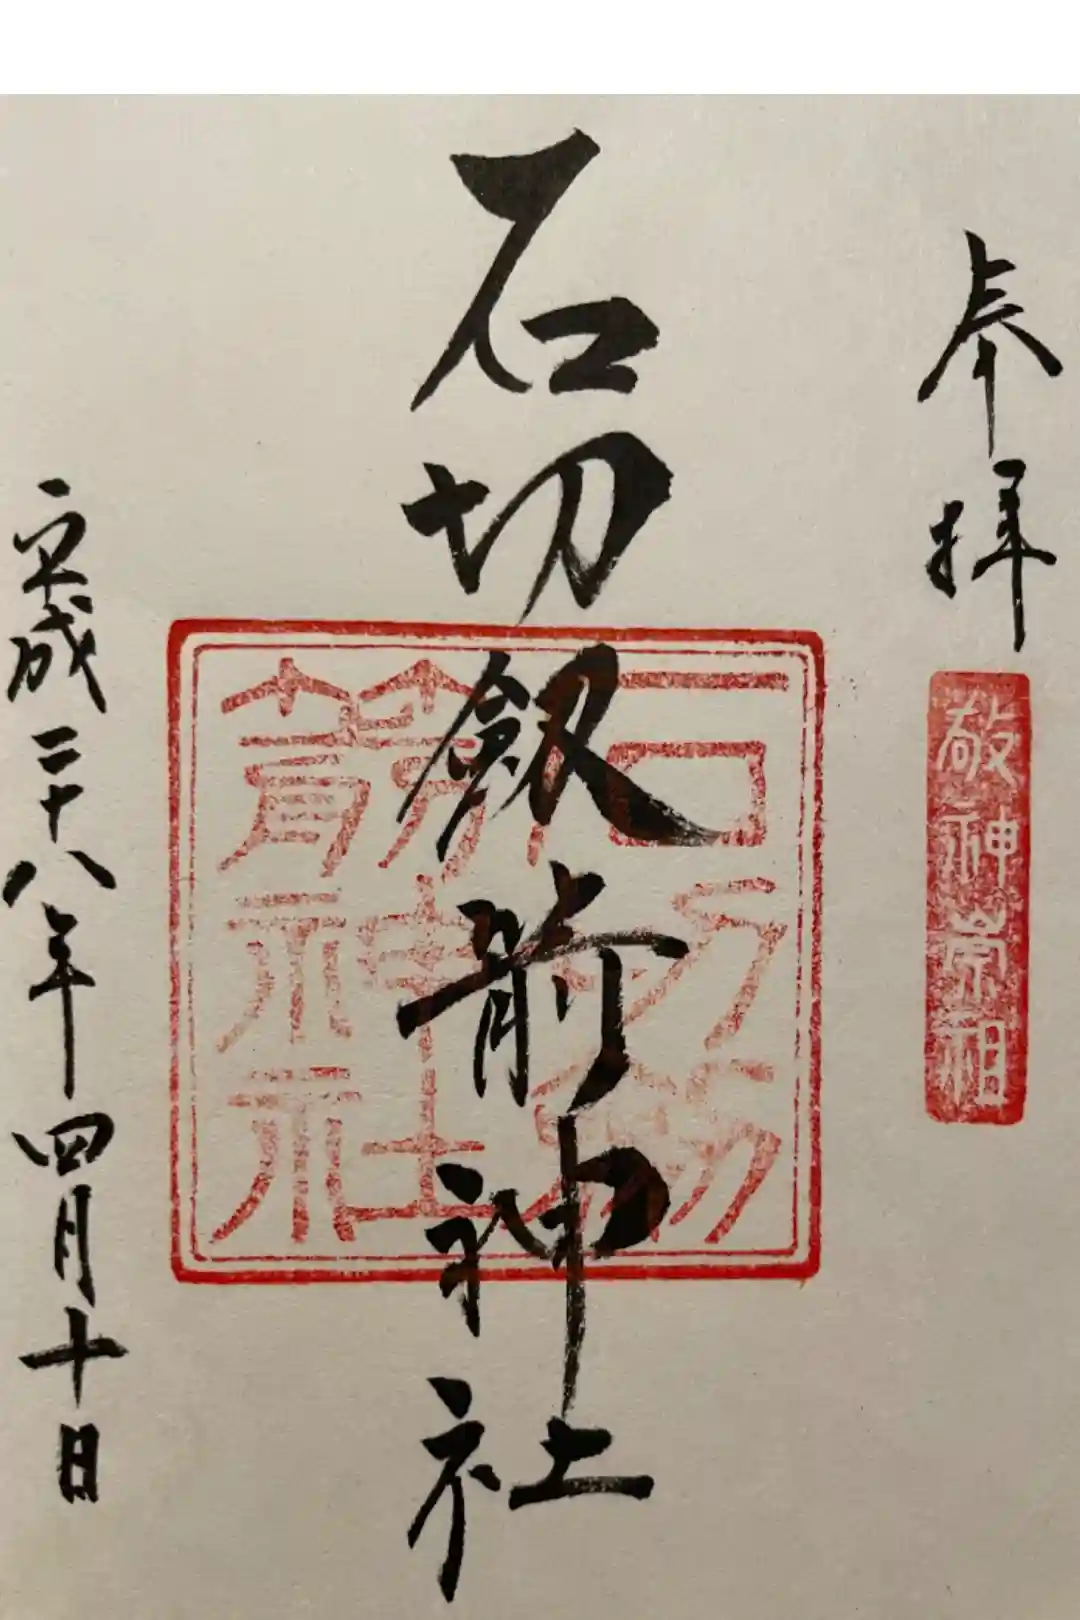 奉拝
敬神崇祖
石切劔箭神社
石切劔
箭神社
平成二十八年四月十日